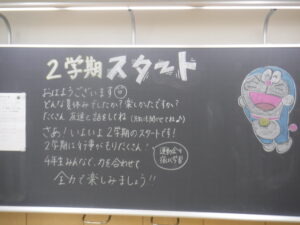 2学期スタート
おはようございます
どんな夏休みでしたか?楽しかったですか?
たくさん友達と話をしてね
さあ!いよいよ2学期のスタートです!
2学期は行事がもりだくさん!
4年生みんなで、力を合わせて
全力で楽しみましょう!!
運動会